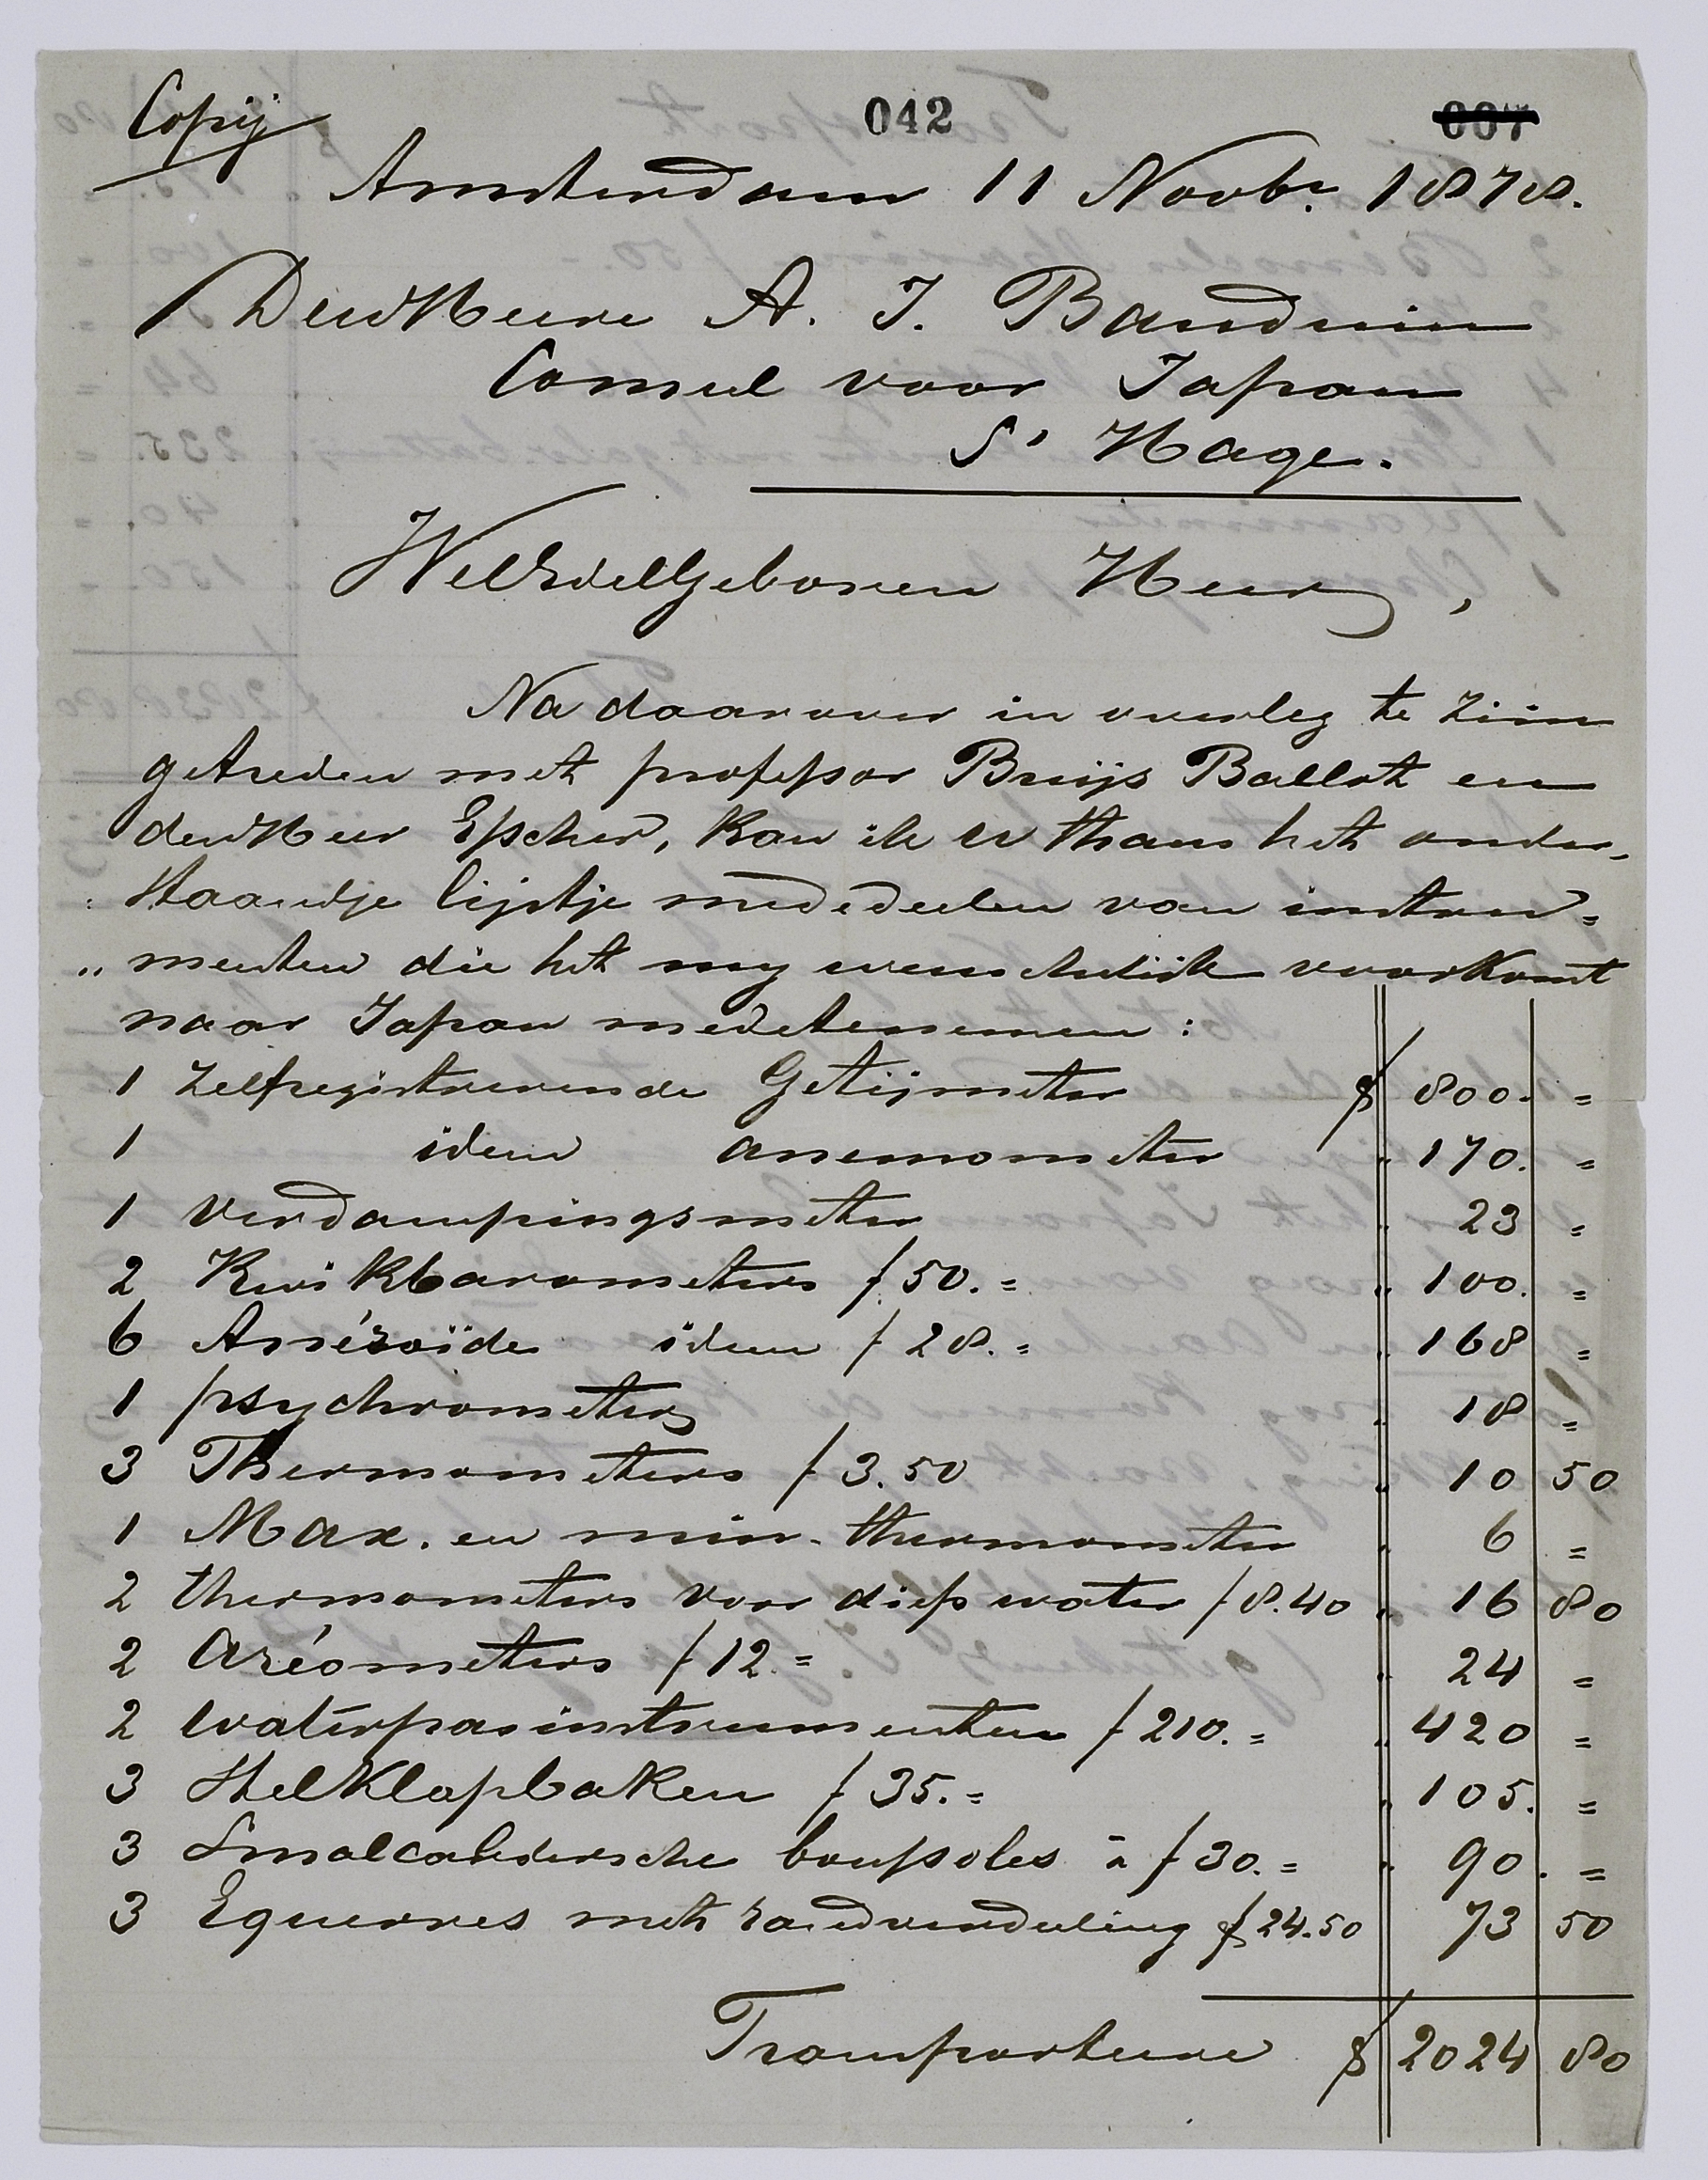 Copij
042
007
Amsterdam 11 Novbr. 1878.
Den Heere A. J. Bauduin
Consul voor Japan
S' Hage.
WelEdelGeboren Heer,
Na daarover in overleg te zijn
getreden met professor Buijs Ballot en
den Heer Escher, kan ik U thans het onder-
: staandje lijstje mededeelen van instru=
" menten die het mij wenschelijk voorkomt
naar Japan medetenemen :
1 Zelfregistreerende Getijmeter f 800. =
1 idem anemometer " 170. =
1 Verdampingsmeter " 23 =
2 Kwikbarometers f 50. = " 100. =
6 Anéroïde idem f 28. = " 168 =
1 psychrometer " 18 =
3 Thermometers f 3.50 " 10 50
1 Max. en min. thermometer " 6 =
2 thermometers voor diep water f 8.40 " 16 80
2 Aréometers f 12. = " 24 =
2 Waterpasinstrumenten f 210. = " 420 =
3 Stelklapbaken f 35. = " 105. =
3 Smalcaldersche boussoles à f 30. = " 90. =
3 Equerres met randverdeeling f 24.50 73 50
Transporteere f 2024 80